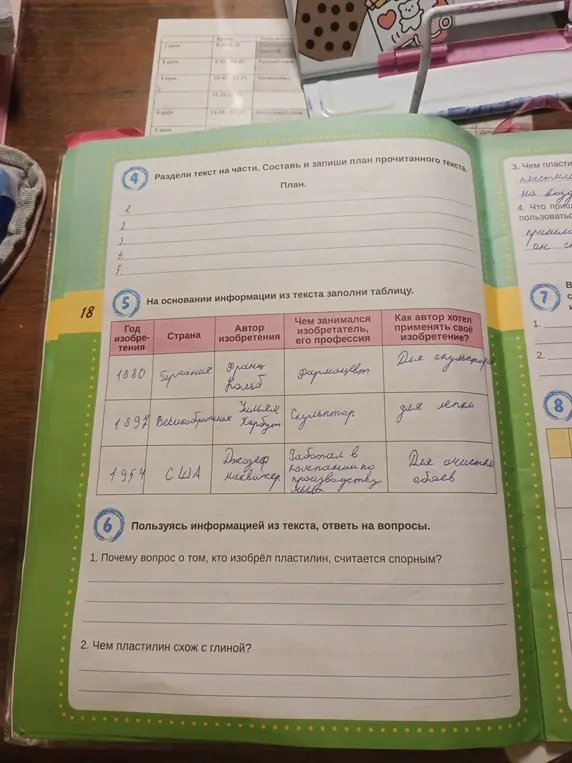 Кружки
1 урок
2 урок
3 урок
Математика
11.25
4 урок
Английский язык
5 урок
4 Раздели текст на части. Составь и запиши план прочитанного текста.
План.
1
2
3
4
5
18
5 На основании информации из текста заполни таблицу.
Год изобре-тения Страна Автор изобретения Чем занимался изобретатель, его профессия Как автор хотел применять своё изобретение?
1880 Германия Франц Кольб Фармацевт Для скульпторов
1897 Великобритания Уильям Харбут Скульптор для лепки
1954 США Джозеф Маквикер Работал в компании по производству мыла Для очистки обоев
6 Пользуясь информацией из текста, ответь на вопросы.
1. Почему вопрос о том, кто изобрёл пластилин, считается спорным?
2. Чем пластилин схож с глиной?
3. Чем пласти
на возд
4. Что приш
пользоватьс
он с
7
1.
2.
8